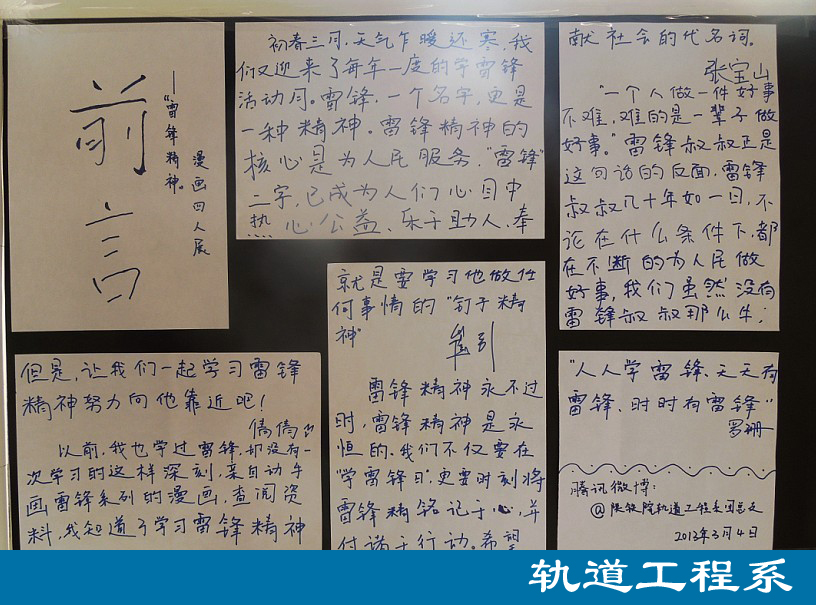 前言
——“雷锋精神”
漫画四人展
初春三月，天气乍暖还寒，我
们又迎来了每年一度的学雷锋
活动月。雷锋，一个名字，更是
一种精神。雷锋精神的
核心是为人民服务，“雷锋”
二字，已成为人们心目中
热心公益、乐于助人、奉
献社会的代名词。
张宝山
“一个人做一件好事
不难，难的是一辈子做
好事。”雷锋叔叔正是
这句话的反面，雷锋
叔叔几十年如一日，不
论在什么条件下，都
在不断的为人民做
好事，我们虽然没有
雷锋叔叔那么牛，
但是，让我们一起学习雷锋
精神努力向他靠近吧！
倩倩
以前，我也学过雷锋，却没有一
次学习的这样深刻，亲自动手
画雷锋系列的漫画，查阅资
料，我知道了学习雷锋精神
就是要学习他做任
何事情的“钉子精
神”
崔引
雷锋精神永不过
时，雷锋精神是永
恒的、我们不仅要在
“学雷锋日”，更要时刻将
雷锋精铭记于心，并
付诸于行动。希望
“人人学雷锋、天天有
雷锋、时时有雷锋”
罗珊
腾讯微博：
@陕铁院轨道工程系团总支
2013年3月4日
轨道工程系